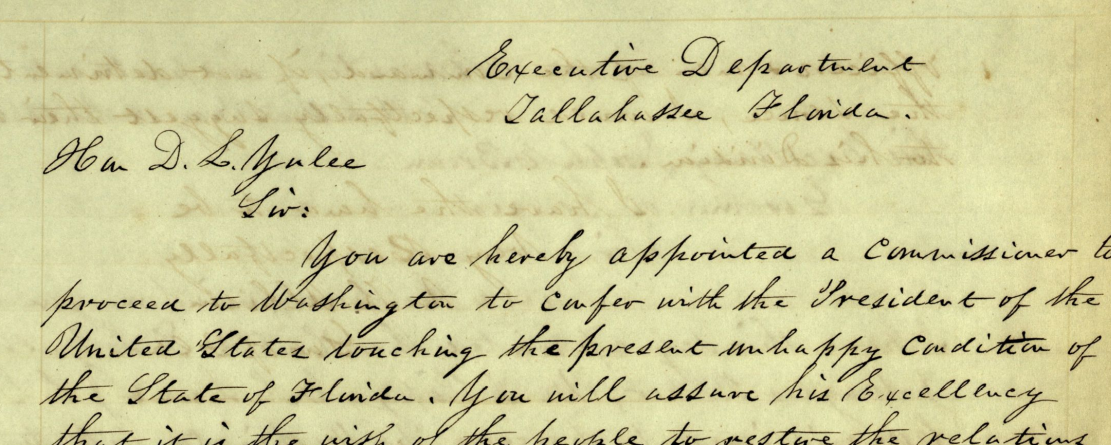 Executive Department
Tallahassee Florida.
Hon D. L. Yulee
Sir:
You are hereby appointed a Commissioner to
proceed to Washington to confer with the President of the
United States touching the present unhappy Condition of
the State of Florida. You will assure his Excellency
that it is the wish of the people to restore the relations